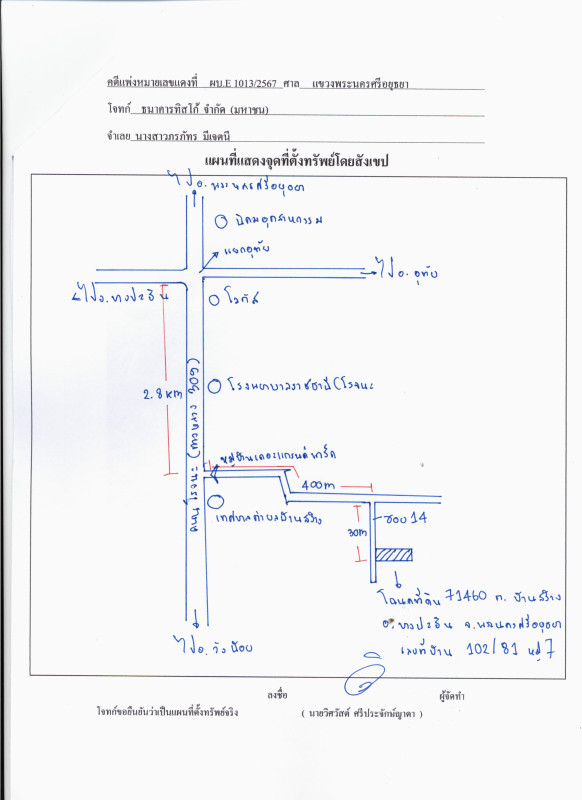 คดีแพ่งหมายเลขแดงที่ ผบ.E 1013/2567 ศาล แขวงพระนครศรีอยุธยา
โจทก์ ธนาคารทิสโก้ จำกัด (มหาชน)
จำเลย นางสาวภรภัทร มีเจตนี
แผนที่แสดงจุดที่ตั้งทรัพย์โดยสังเขป
ไป อ. พระนครศรีอยุธยา
นิคมอุตสาหกรรม
แยกอุทัย
ไป อ. อุทัย
ไป อ. บางปะอิน
โลตัส
2.8 km
โรงพยาบาลราชธานี (โรจนะ
ถนน โรจนะ (ทางหลวง 309)
หมู่บ้านเดอะแกรนด์ พาร์ค
400m
เทศบาลตำบลบ้านสร้าง
ซอย 14
30m
โฉนดที่ดิน 71460 ต. บ้านสร้าง
อ. บางปะอิน จ. พระนครศรีอยุธยา
เลขที่บ้าน 102/81 หมู่ 7
ไป อ. วังน้อย
ลงชื่อ ผู้จัดทำ
โจทก์ขอยืนยันว่าเป็นแผนที่ตั้งทรัพย์จริง ( นายวิศวัสต์ ศรีประจักษ์ญาดา )